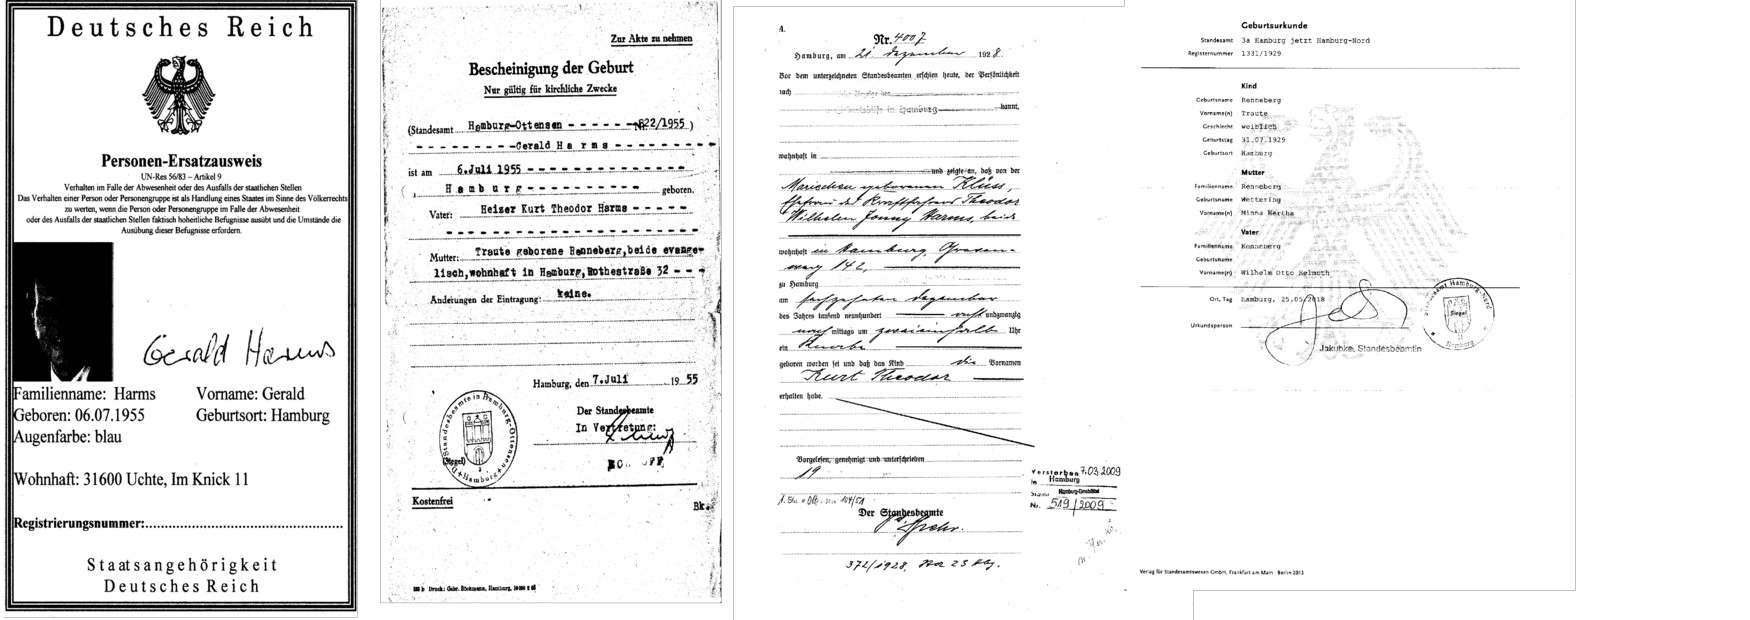 Deutsches Reich
Personen-Ersatzausweis
UN-Res 56/83 – Artikel 9
Verhalten im Falle der Abwesenheit oder des Ausfalls der staatlichen Stellen
Das Verhalten einer Person oder Personengruppe ist als Handlung eines Staates im Sinne des Völkerrechts
zu werten, wenn die Person oder Personengruppe im Falle der Abwesenheit
oder des Ausfalls der staatlichen Stellen faktisch hoheitliche Befugnisse ausübt und die Umstände die
Ausübung dieser Befugnisse erfordern.
Gerald Harms
Familienname: Harms Vorname: Gerald
Geboren: 06.07.1955 Geburtsort: Hamburg
Augenfarbe: blau
Wohnhaft: 31600 Uchte, Im Knick 11
Registrierungsnummer:
Staatsangehörigkeit
Deutsches Reich
Zur Akte zu nehmen
Bescheinigung der Geburt
Nur gültig für kirchliche Zwecke
(Standesamt Hamburg-Ottensen 822/1955 )
Gerald Harms
ist am 6.Juli 1955
( Hamburg geboren.
Vater: Heizer Kurt Theodor Harms
Mutter: Traute geborene Renneberg, beide evange-
lisch, wohnhaft in Hamburg, Rothestraße 32
Änderungen der Eintragung: keine.
Hamburg, den 7.Juli 19 55
Der Standesbeamte
In Vertretung:
(Siegel)
Kostenfrei
Bk.
4.
Nr. 4007
Hamburg, am 21 Dezember 192 8.
Vor dem unterzeichneten Standesbeamten erschien heute, der Persönlichkeit
nach
in Hamburg kannt,
wohnhaft in
und zeigte an, daß von der
geborenen Klüss,
Ehefrau des Kraftfahrers Theodor
Wilhelm Jonny Harms, beide
wohnhaft in Hamburg,
weg 142,
zu Hamburg
am Dezember
des Jahres tausend neunhundert acht undzwanzig
nach mittags um Uhr
ein Knabe
geboren worden sei und daß das Kind die Vornamen
Kurt Theodor
erhalten habe.
Vorgelesen, genehmigt und unterschrieben
Der Standesbeamte
Verstorben 7.03.2009
in Hamburg
Nr. 519/2009
Geburtsurkunde
Standesamt 3a Hamburg jetzt Hamburg-Nord
Registernummer 1331/1929
Kind
Geburtsname Renneberg
Vorname(n) Traute
Geschlecht weiblich
Geburtstag 31.07.1929
Geburtsort Hamburg
Mutter
Familienname Renneberg
Geburtsname Wettering
Vorname(n) Minna Hertha
Vater
Familienname Renneberg
Geburtsname
Vorname(n) Wilhelm Otto Helmuth
Ort, Tag Hamburg, 25.05.2018
Urkundsperson
Jakubke, Standesbeamtin
Standesamt Hamburg-Nord
Siegel
Hamburg
Verlag für Standesamtswesen GmbH, Frankfurt am Main · Berlin 2013